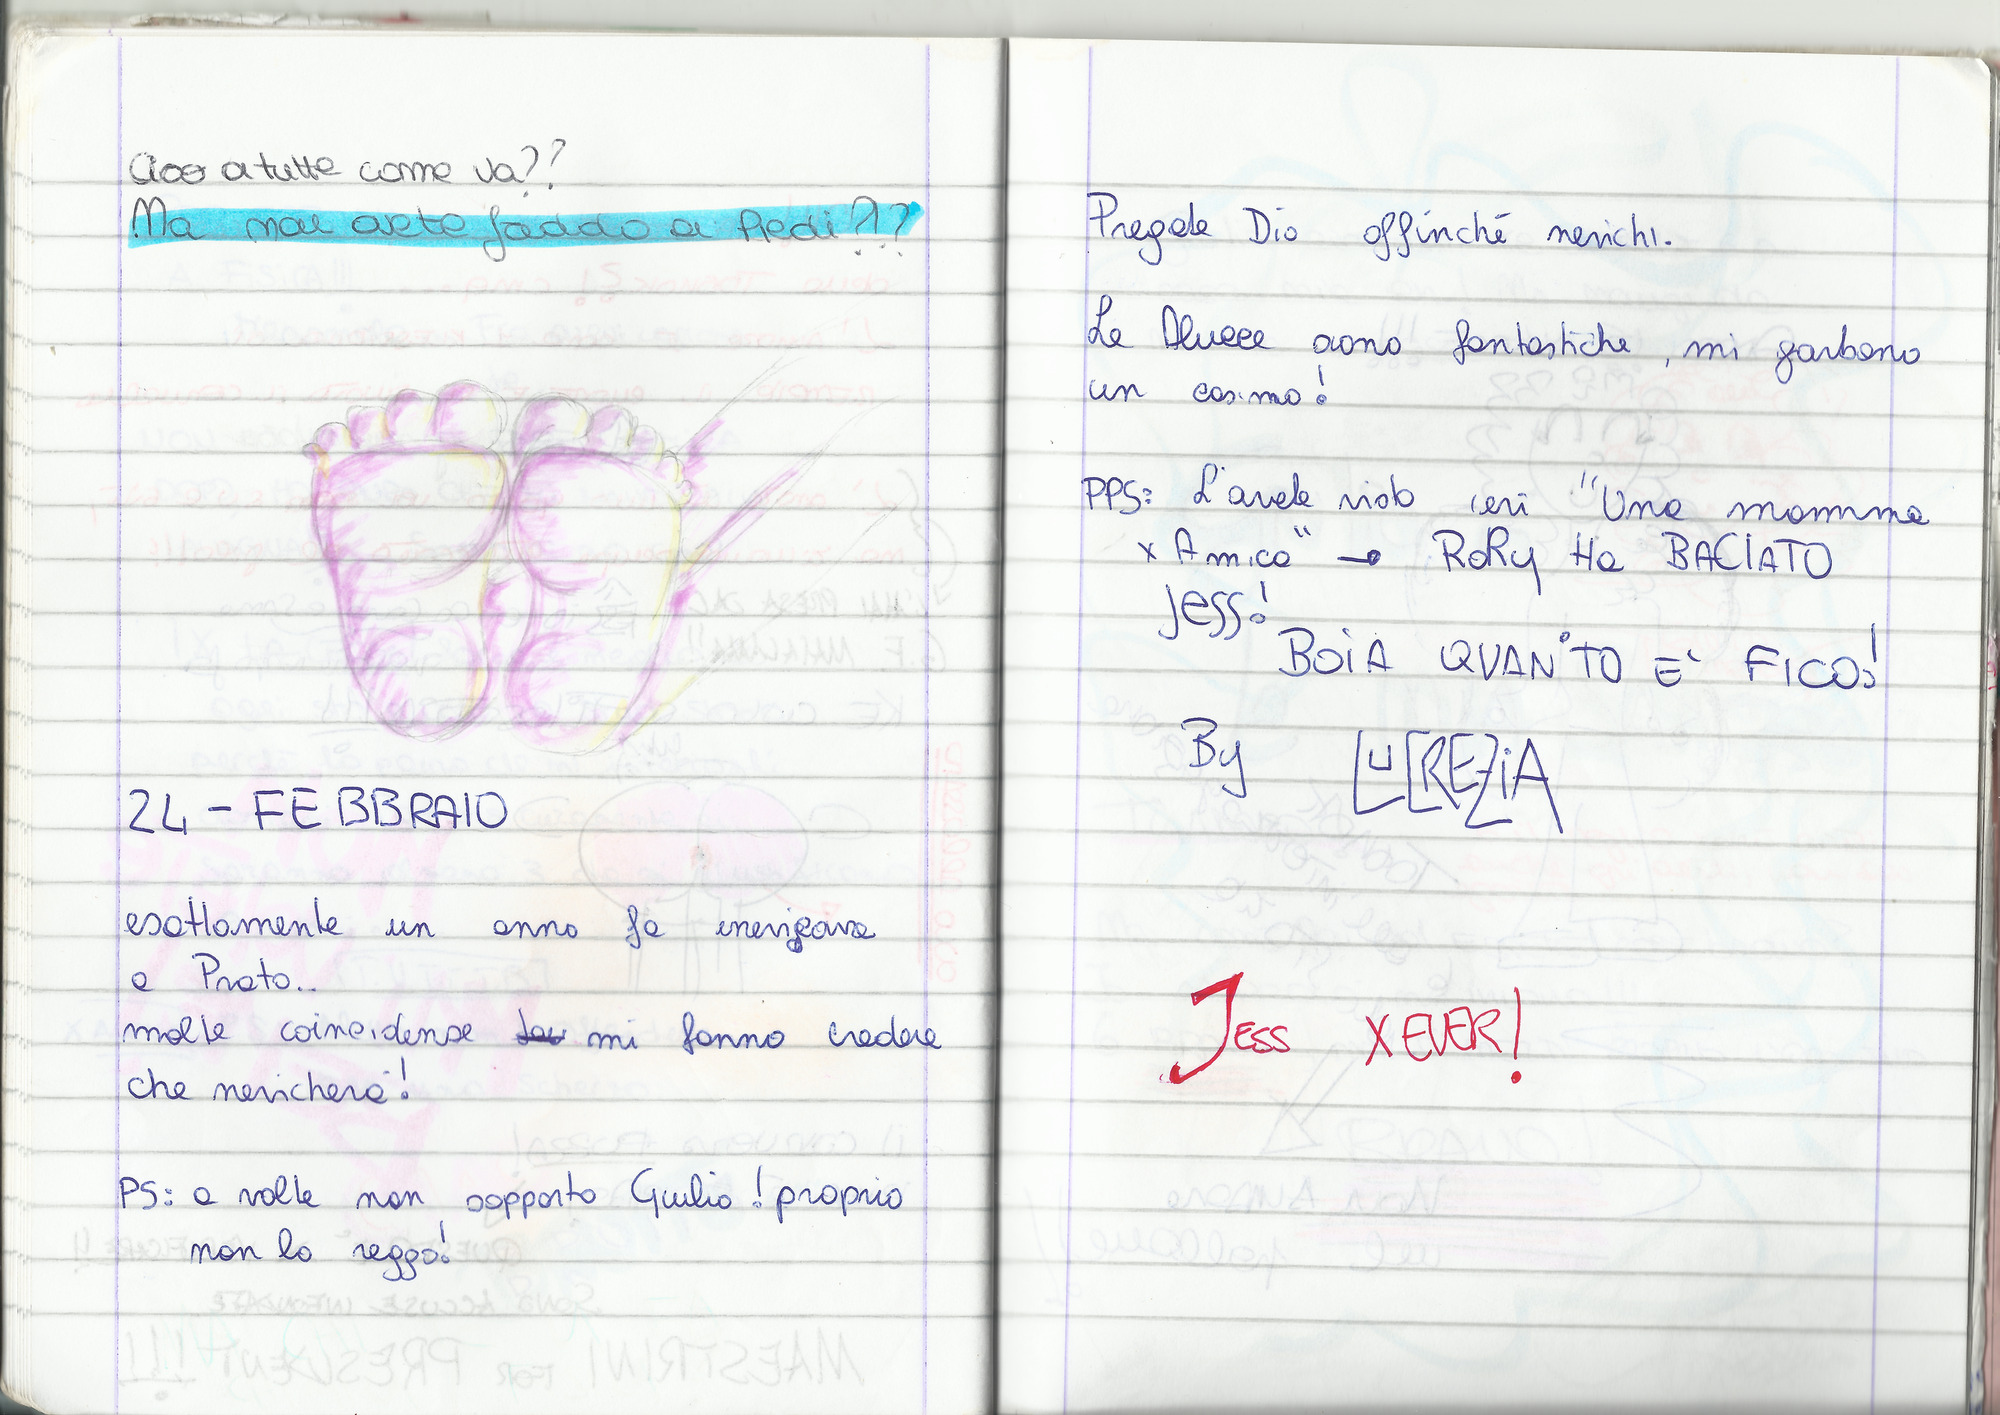 Ciao a tutte come va??
Ma voi avete freddo ai Piedi???
24 - FEBBRAIO
esattamente un anno fa nevigava
a Prato..
molte coincidense mi fanno credere
che nevicherà!
PS: a volte non sopporto Giulio! proprio
non lo reggo!
Pregate Dio affinché nevichi.
Le Blucce sono fantastiche, mi garbano
un casimo!
PPS: L'avete visto ieri "Una mamma
x Amica" → RORy Ha BACIATO
JESS!
BOiA QUANTO E' FICO!
By LUCREZiA
JESS XEVER!
MAESTRINI FOR PRESIDENT!!!